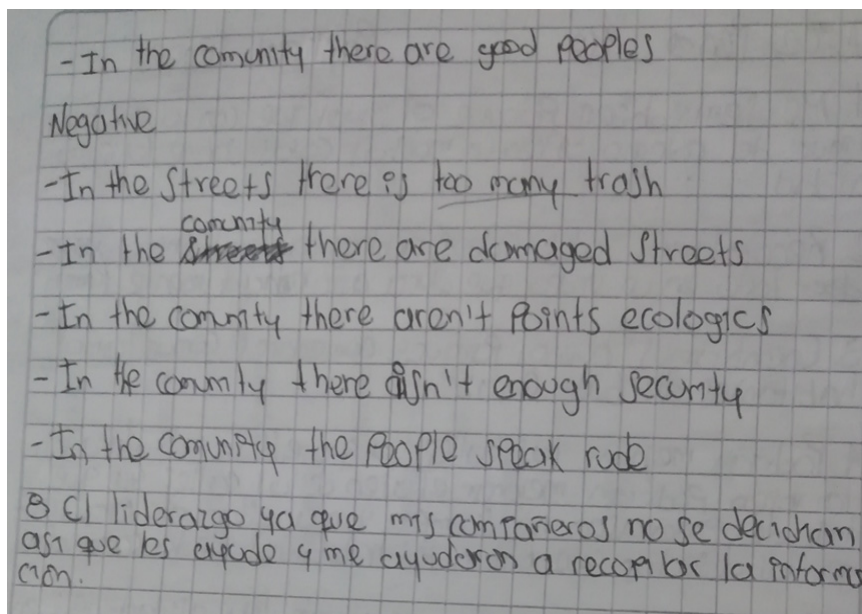 - In the comunity there are good peoples
Negative
- In the streets there is too many trash
comunity
- In the streets there are damaged streets
- In the comunity there aren't Points ecologics
- In the comunity there isn't enough security
- In the comunity the People speak rude
8 El liderazgo ya que mis compañeros no se decidian
asi que les ayude y me ayudaron a recopilar la informa
ción.